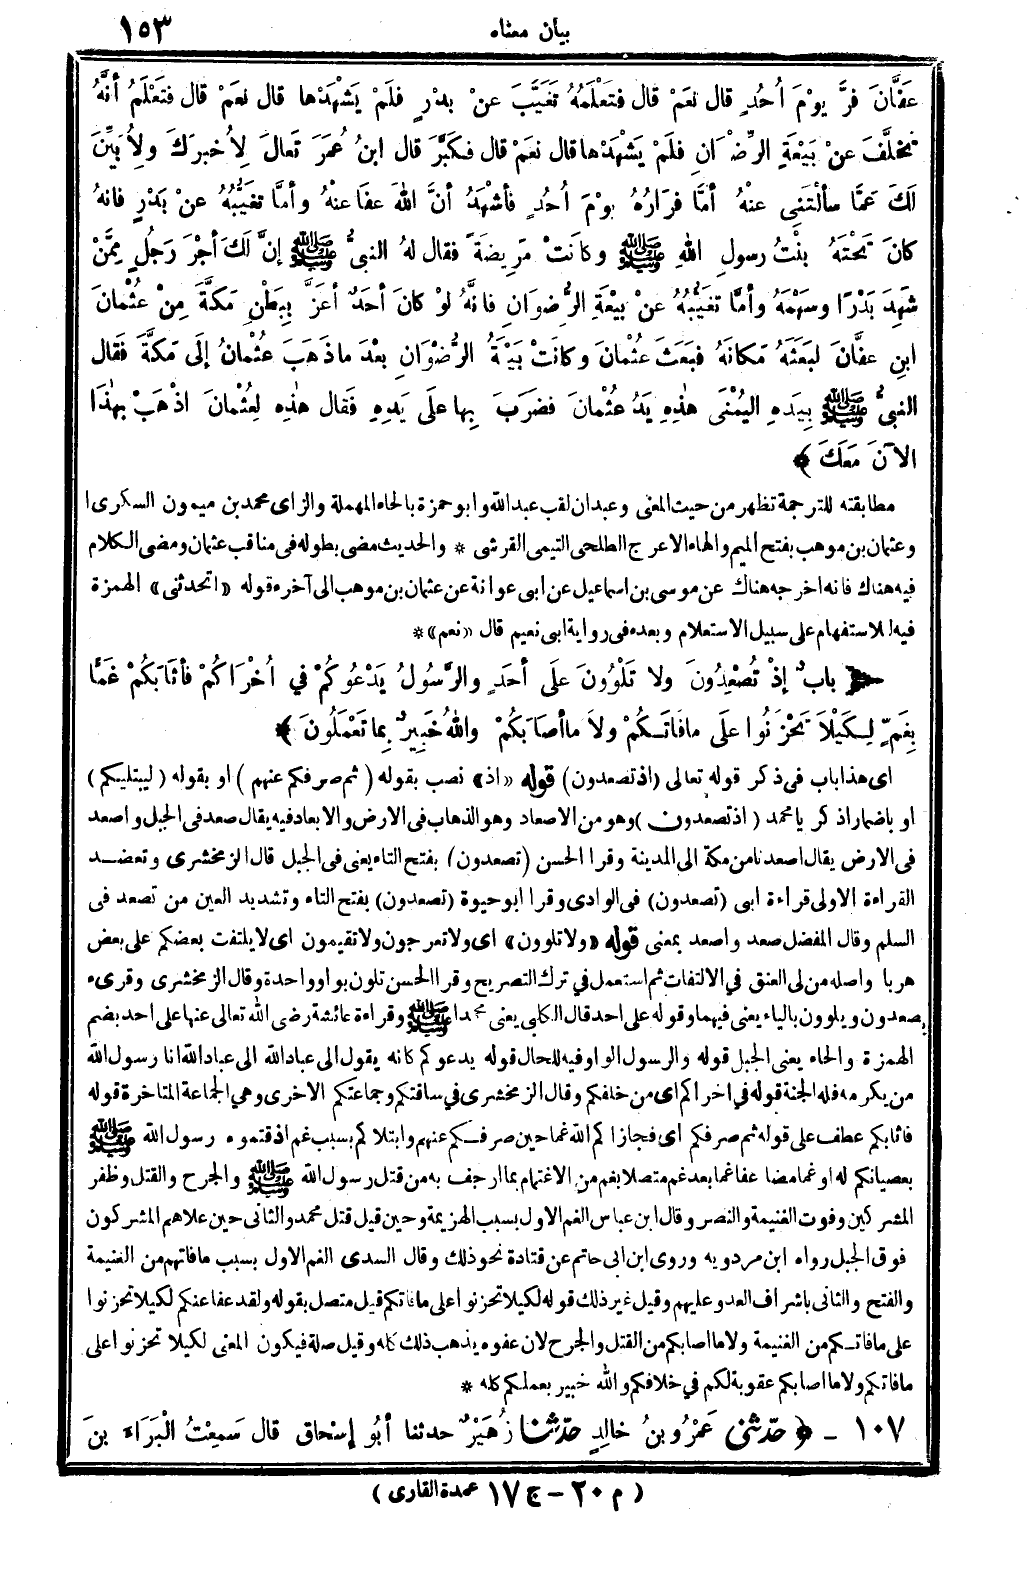 بيان معناه ١٥٣
عَفَّانَ فرَّ يوْمَ أُحُدٍ قال نعَمْ قال فتَعْلَمُهُ تغَيَّبَ عنْ بدْرٍ فلَمْ يَشْهَدْها قال نعَمْ قال فتَعْلَمُ أنَّهُ
تخَلَّفَ عنْ بَيْعَةِ الرِّضْوَانِ فلَمْ يَشْهَدْها قال نعَمْ قال فكَبَّرَ قال ابنُ عُمَرَ تَعالَ لِأُخبرَكَ ولِأُبَيِّنَ
لَكَ عَمَّا سألْتَنِي عنْهُ أمَّا فرَارُهُ يوْمَ أُحُدٍ فأشْهَدُ أنَّ اللهَ عفَا عنْهُ وأمَّا تغَيُّبُهُ عنْ بَدْرٍ فانهُ
كانَ تَحْتَهُ بِنْتُ رسولِ اللهِ ﷺ وكانَتْ مَرِيضَةً فقال لهُ النبيُّ ﷺ إنَّ لَكَ أجْرَ رَجُلٍ مِمَّنْ
شَهِدَ بَدْرًا وسَهْمَهُ وأمَّا تغَيُّبُهُ عنْ بيْعَةِ الرُّضوَانِ فانَّهُ لوْ كانَ أحَدٌ أعَزَّ بِبَطْنِ مَكَّةَ مِنْ عُثْمانَ
ابنِ عفَّانَ لبَعَثَهُ مَكانَهُ فبَعَثَ عُثْمانَ وكانَتْ بَيْعَةُ الرُّضْوَانِ بعْدَ ماذَهَبَ عُثْمانُ إلَى مَكَّةَ فقال
النبيُّ ﷺ بِيَدَهِ اليُمْنَى هذِهِ يَدُ عُثْمانَ فضَرَبَ بِها علَى يَدِهِ فَقال هذِهِ لِعُثْمانَ اذْهَبْ بهٰذَا
الآنَ مَعَكَ ﴾
مطابقته للترجمة تظهر من حيث المعنى وعبدان لقب عبدالله وابو حمزة بالحاء المهملة والزاى محمد بن ميمون السكرى
وعثمان بن موهب بفتح الميم والهاء الاعرج الطلحى التيمى القرشى * والحديث مضى بطوله فى مناقب عثمان ومضى الكلام
فيه هناك فانه اخرجه هناك عن موسى بن اسماعيل عن ابى عوانة عن عثمان بن موهب الى آخره قوله «اتحدثنى» الهمزة
فيه للاستفهام على سبيل الاستعلام وبعده فى رواية ابى نعيم قال «نعم» *
بابٌ إذْ تُصْعِدُونَ ولا تَلْوُونَ علَى أحَدٍ والرَّسُولُ يَدْعُوكُمْ في أُخْرَاكُمْ فأثابَكُمْ غَمًّا
بِغَمٍّ لِكَيْلاَ تَحْزَنُوا علَى مافاتَكُمْ ولاَ ماأصَابَكُمْ واللهُ خَبِيرٌ بِما تَعْمَلُونَ ﴾
اى هذا باب فى ذكر قوله تعالى (اذ تصعدون) قوله «اذ» نصب بقوله (ثم صرفكم عنهم) او بقوله (ليبتليكم)
او باضمار اذكر يا محمد (اذ تصعدون) وهو من الاصعاد وهو الذهاب فى الارض والابعاد فيه يقال صعد فى الجبل واصعد
فى الارض يقال اصعدنا من مكة الى المدينة وقرا الحسن (تصعدون) بفتح التاء يعنى فى الجبل قال الزمخشرى وتعضد
القراءة الاولى قراءة ابى (تصعدون) فى الوادى وقرا ابو حيوة (تصعدون) بفتح التاء وتشديد العين من تصعد فى
السلم وقال المفضل صعد واصعد بمعنى قوله «ولا تلوون» اى ولا تعرجون ولا تقيمون اى لا يلتفت بعضكم على بعض
هربا واصله من لى العنق في الالتفات ثم استعمل في ترك التصريح وقرا الحسن تلون بواو واحدة وقال الزمخشرى وقرىء
يصعدون ويلوون بالياء يعنى فيهما وقوله على احد قال الكلبى يعنى محمدا ﷺ وقراءة عائشة رضى الله تعالى عنها على احد بضم
الهمزة والحاء يعنى الجبل قوله والرسول الواو فيه للحال قوله يدعوكم كانه يقول الى عباد الله الى عباد الله انا رسول الله
من يكر مه فله الجنة قوله في اخراكم اى من خلفكم وقال الزمخشرى في ساقتكم وجماعتكم الاخرى وهي الجماعة المتاخرة قوله
فاثابكم عطف على قوله ثم صرفكم اى فجازاكم الله غما حين صرفكم عنهم وابتلاكم بسبب غم اذقتموه رسول الله ﷺ
بعصيانكم له او غما مضاعفا غما بعد غم متصلا بغم من الاغتمام بما ارجف به من قتل رسول الله ﷺ والجرح والقتل وظفر
المشركين وفوت الغنيمة والنصر وقال ابن عباس الغم الاول بسبب الهزيمة وحين قيل قتل محمد والثانى حين علاهم المشركون
فوق الجبل رواه ابن مردويه وروى ابن ابى حاتم عن قتادة نحو ذلك وقال السدى الغم الاول بسبب مافاتهم من الغنيمة
والفتح والثانى باشراف العدو عليهم وقيل غير ذلك قوله لكيلا تحزنوا على مافاتكم قيل متصل بقوله ولقد عفا عنكم لكيلا تحزنوا
على مافاتكم من الغنيمة ولا ما اصابكم من القتل والجرح لان عفوه يذهب ذلك كله وقيل صلة فيكون المعنى لكيلا تحزنوا على
مافاتكم ولا ما اصابكم عقوبة لكم في خلافكم والله خبير بعملكم كله *
١٠٧ – ﴿ حدّثني عَمْرُو بنُ خالِدٍ حدّثنا زُهَيْرٌ حدثنا أبُو إسْحاقَ قال سَمِعْتُ الْبَرَاءَ بنَ
(م ٢٠ – ج ١٧ عمدة القارى)